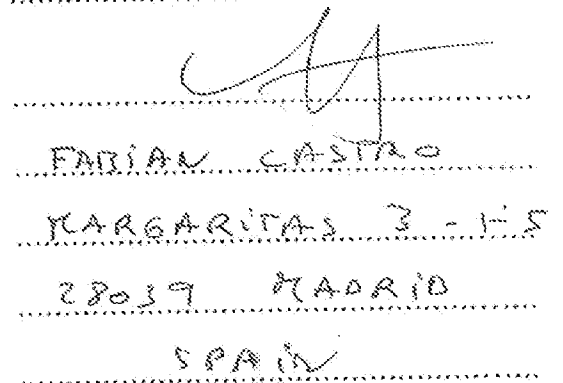 FABIAN CASTRO
MARGARITAS 3 - 1-5
28039 MADRID
SPAIN